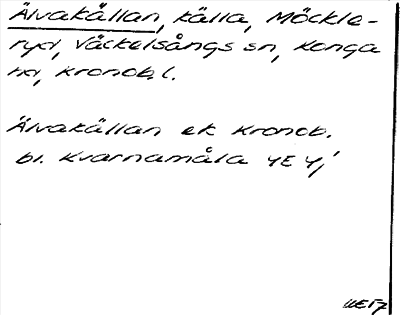 Älvakällan, källa, Möckle-
ryd, Väckelsångs sn, Konga
hd, Kronob.l.
Älvakällan ek Kronob.
bl. Kvarnamåla 4E 4j